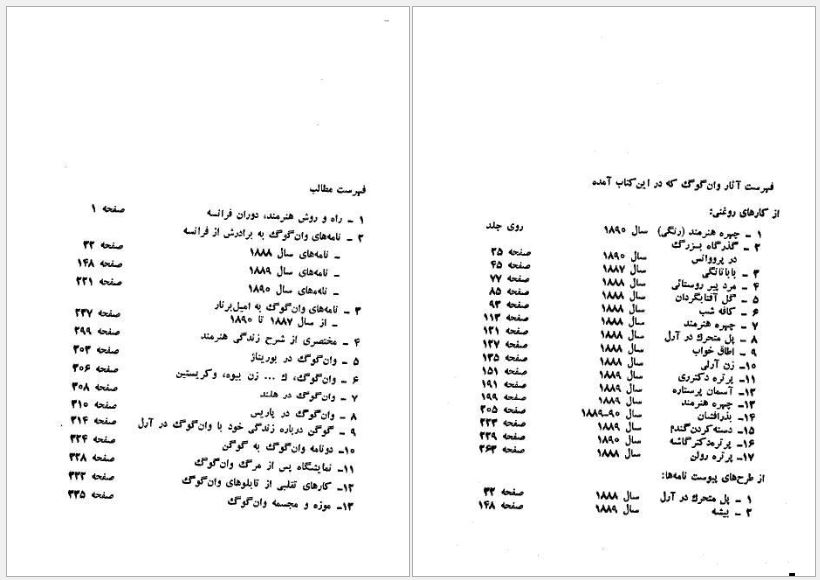 فهرست آثار وان‌گوگ که در این کتاب آمده
از کارهای روغنی:
۱ ـ چهره هنرمند (رنگی) سال ۱۸۹۰ روی جلد
۲ ـ گذرگاه بزرگ
در پرووانس سال ۱۸۹۰ صفحه ۲۵
۳ ـ باباتانگی سال ۱۸۸۷ صفحه ۴۵
۴ ـ مرد پیر روستائی سال ۱۸۸۸ صفحه ۷۷
۵ ـ گل آفتابگردان سال ۱۸۸۸ صفحه ۸۵
۶ ـ کافه شب سال ۱۸۸۸ صفحه ۹۳
۷ ـ چهره هنرمند سال ۱۸۸۸ صفحه ۱۱۳
۸ ـ پل متحرك در آرل سال ۱۸۸۸ صفحه ۱۲۱
۹ ـ اطاق خواب سال ۱۸۸۸ صفحه ۱۲۷
۱۰ـ زن آرلی سال ۱۸۸۸ صفحه ۱۳۵
۱۱ـ پرتره دکترری سال ۱۸۸۹ صفحه ۱۵۱
۱۲ـ آسمان پرستاره سال ۱۸۸۹ صفحه ۱۹۱
۱۳ـ چهره هنرمند سال ۱۸۸۹ صفحه ۱۹۹
۱۴ـ بذرافشان سال ۹۰ـ۱۸۸۹ صفحه ۲۰۵
۱۵ـ دسته‌کردن‌گندم سال ۱۸۸۹ صفحه ۲۲۳
۱۶ـ پرتره‌دکترگاشه سال ۱۸۹۰ صفحه ۲۲۹
۱۷ـ پرتره رولن سال ۱۸۸۸ صفحه ۲۶۳
از طرح‌های پیوست نامه‌ها:
۱ ـ پل متحرك در آرل سال ۱۸۸۸ صفحه ۳۲
۲ ـ بیشه سال ۱۸۸۹ صفحه ۱۴۸
فهرست مطالب
۱ ـ راه و روش هنرمند، دوران فرانسه صفحه ۱
۲ ـ نامه‌های وان‌گوگ به برادرش از فرانسه
ـ نامه‌های سال ۱۸۸۸ صفحه ۳۲
ـ نامه‌های سال ۱۸۸۹ صفحه ۱۴۸
ـ نامه‌های سال ۱۸۹۰ صفحه ۲۲۱
۳ ـ نامه‌های وان‌گوگ به امیل‌برنار
ـ از سال ۱۸۸۷ تا ۱۸۹۰ صفحه ۲۳۷
۴ ـ مختصری از شرح زندگی هنرمند صفحه ۲۹۹
۵ ـ وان‌گوگ در بوریناژ صفحه ۳۰۳
۶ ـ وان‌گوگ، ك ... زن بیوه، وکریستین صفحه ۳۰۶
۷ ـ وان‌گوگ در هلند صفحه ۳۰۸
۸ ـ وان‌گوگ در پاریس صفحه ۳۱۰
۹ ـ گوگن درباره زندگی خود با وان‌گوگ در آرل صفحه ۳۱۴
۱۰ـ دونامه وان‌گوگ به گوگن صفحه ۳۲۴
۱۱ـ نمایشگاه پس از مرگ وان‌گوگ صفحه ۳۲۸
۱۲ـ کارهای تقلبی از تابلوهای وان‌گوگ صفحه ۳۳۲
۱۳ـ موزه و مجسمه وان‌گوگ صفحه ۳۳۵